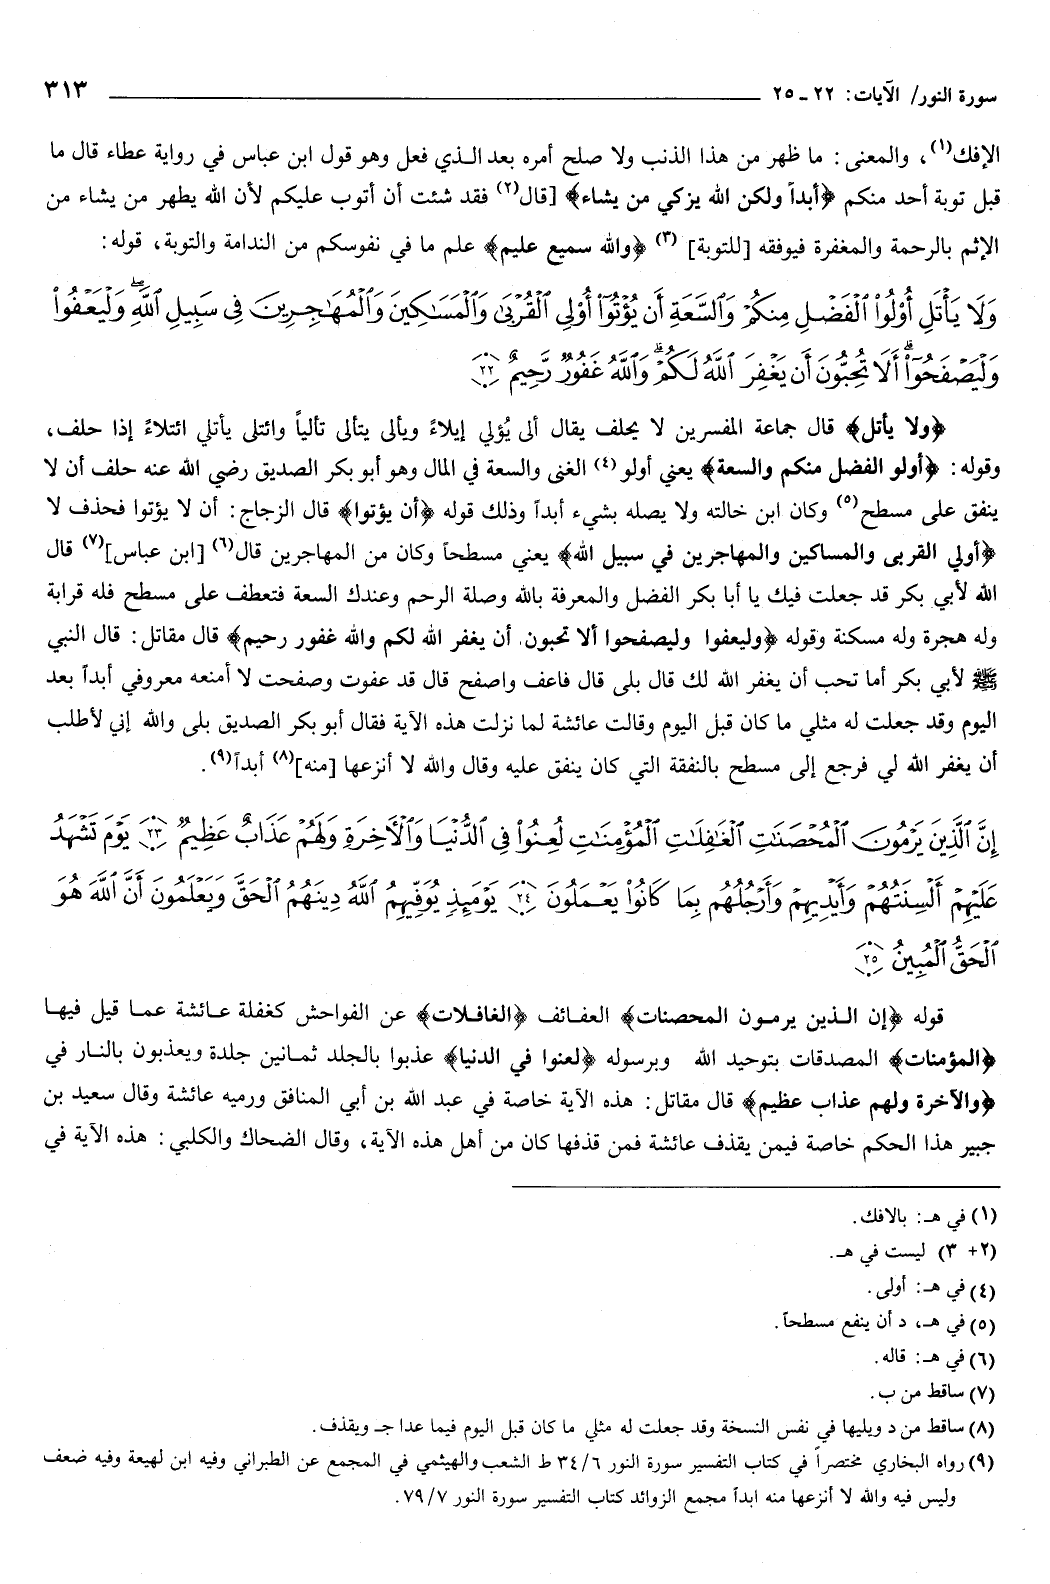 سورة النور/ الآيات: ٢٢ - ٢٥ ٣١٣
الإفك(١)، والمعنى: ما ظهر من هذا الذنب ولا صلح أمره بعد الذي فعل وهو قول ابن عباس في رواية عطاء قال ما
قبل توبة أحد منكم ﴿أبداً ولكن الله يزكي من يشاء﴾ [قال(٢) فقد شئت أن أتوب عليكم لأن الله يطهر من يشاء من
الإثم بالرحمة والمغفرة فيوفقه [للتوبة] (٣) ﴿والله سميع عليم﴾ علم ما في نفوسكم من الندامة والتوبة، قوله:
وَلَا يَأْتَلِ أُوْلُواْ ٱلْفَضْلِ مِنكُمْ وَٱلسَّعَةِ أَن يُؤْتُوٓاْ أُوْلِي ٱلْقُرْبَىٰ وَٱلْمَسَٰكِينَ وَٱلْمُهَٰجِرِينَ فِي سَبِيلِ ٱللَّهِۖ وَلْيَعْفُواْ
وَلْيَصْفَحُوٓاْۗ أَلَا تُحِبُّونَ أَن يَغْفِرَ ٱللَّهُ لَكُمْۗ وَٱللَّهُ غَفُورٌ رَّحِيمٌ ٢٢
﴿ولا يأتل﴾ قال جماعة المفسرين لا يحلف يقال ألى يُؤلي إيلاءً ويألى يتألى تألياً وائتلى يأتلي ائتلاءً إذا حلف،
وقوله: ﴿أولو الفضل منكم والسعة﴾ يعني أولو (٤) الغنى والسعة في المال وهو أبو بكر الصديق رضي الله عنه حلف أن لا
ينفق على مسطح(٥) وكان ابن خالته ولا يصله بشيء أبداً وذلك قوله ﴿أن يؤتوا﴾ قال الزجاج: أن لا يؤتوا فحذف لا
﴿أولي القربى والمساكين والمهاجرين في سبيل الله﴾ يعني مسطحاً وكان من المهاجرين قال(٦) [ابن عباس](٧) قال
الله لأبي بكر قد جعلت فيك يا أبا بكر الفضل والمعرفة بالله وصلة الرحم وعندك السعة فتعطف على مسطح فله قرابة
وله هجرة وله مسكنة وقوله ﴿وليعفوا وليصفحوا ألا تحبون أن يغفر الله لكم والله غفور رحيم﴾ قال مقاتل: قال النبي
ﷺ لأبي بكر أما تحب أن يغفر الله لك قال بلى قال فاعف واصفح قال قد عفوت وصفحت لا أمنعه معروفي أبداً بعد
اليوم وقد جعلت له مثلي ما كان قبل اليوم وقالت عائشة لما نزلت هذه الآية فقال أبو بكر الصديق بلى والله إني لأطلب
أن يغفر الله لي فرجع إلى مسطح بالنفقة التي كان ينفق عليه وقال والله لا أنزعها [منه](٨) أبداً(٩).
إِنَّ ٱلَّذِينَ يَرْمُونَ ٱلْمُحْصَنَٰتِ ٱلْغَٰفِلَٰتِ ٱلْمُؤْمِنَٰتِ لُعِنُواْ فِي ٱلدُّنْيَا وَٱلْأَخِرَةِ وَلَهُمْ عَذَابٌ عَظِيمٌ ٢٣ يَوْمَ تَشْهَدُ
عَلَيْهِمْ أَلْسِنَتُهُمْ وَأَيْدِيهِمْ وَأَرْجُلُهُم بِمَا كَانُواْ يَعْمَلُونَ ٢٤ يَوْمَئِذٍ يُوَفِّيهِمُ ٱللَّهُ دِينَهُمُ ٱلْحَقَّ وَيَعْلَمُونَ أَنَّ ٱللَّهَ هُوَ
ٱلْحَقُّ ٱلْمُبِينُ ٢٥
قوله ﴿إن الذين يرمون المحصنات﴾ العفائف ﴿الغافلات﴾ عن الفواحش كغفلة عائشة عما قيل فيها
﴿المؤمنات﴾ المصدقات بتوحيد الله وبرسوله ﴿لعنوا في الدنيا﴾ عذبوا بالجلد ثمانين جلدة ويعذبون بالنار في
﴿والآخرة ولهم عذاب عظيم﴾ قال مقاتل: هذه الآية خاصة في عبد الله بن أبي المنافق ورميه عائشة وقال سعيد بن
جبير هذا الحكم خاصة فيمن يقذف عائشة فمن قذفها كان من أهل هذه الآية، وقال الضحاك والكلبي: هذه الآية في
(١) في هـ: بالافك.
(٢+ ٣) ليست في هـ.
(٤) في هـ: أولى.
(٥) في هـ، د أن ينفع مسطحاً.
(٦) في هـ: قاله.
(٧) ساقط من ب.
(٨) ساقط من د ويليها في نفس النسخة وقد جعلت له مثلي ما كان قبل اليوم فيما عدا جـ ويقذف.
(٩) رواه البخاري مختصراً في كتاب التفسير سورة النور ٣٤/٦ ط الشعب والهيثمي في المجمع عن الطبراني وفيه ابن لهيعة وفيه ضعف
وليس فيه والله لا أنزعها منه ابداً مجمع الزوائد كتاب التفسير سورة النور ٧٩/٧.